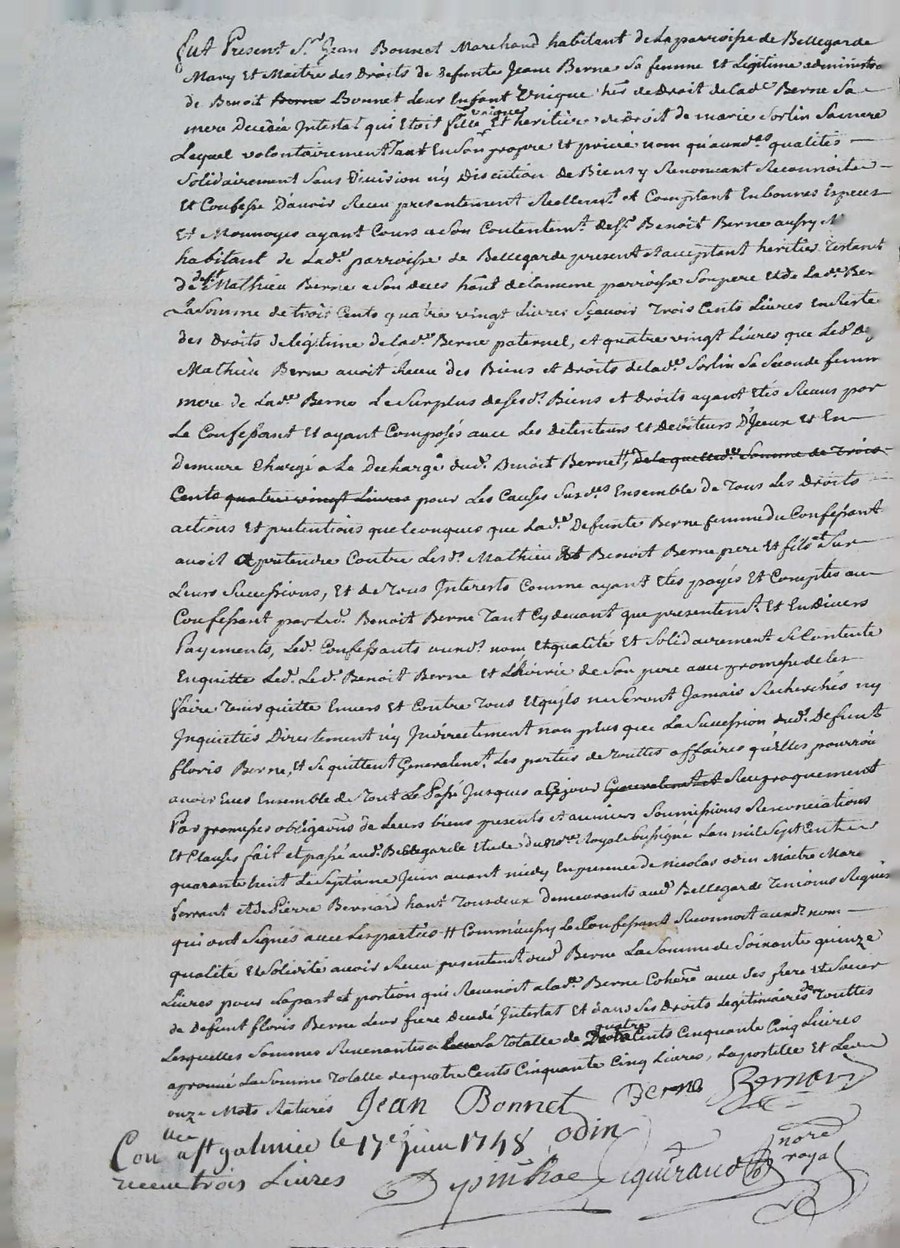 fut Present Sr. Jean Bonnet Marchand habitant de La parroisse de Bellegarde
Mary Et Maitre des Droits de Defunte Jeane Berne Sa femme Et Legitime administr
de Benoit Berne Bonnet Leur Enfant Unique hér de Droit de lade Berne Sa
mere Decedée Intestat qui Etoit fille unique Et heritière de Droit de marie Sorlin Sa mere
Lequel volontairement Tant En Son propre Et privé nom qu'auxds qualités
Solidairement Sans Division ny Discution de Biens y Renoncant Reconnoitre
Et Confesse D'avoir Receu presentement Reellemt et Comptant En bonnes Especes
Et Monnoyes ayant Cours a Son Contentemt de Sr. Benoit Berne aussy M
habitant de Lade parroisse de Bellegarde present et acceptant heritier Testamt
de deft Mathieu Berne a Son deces hant de la meme parroisse Son pere Et de Lade Ber
La Somme de trois Cents quatre vingt Livres Sçavoir Trois Cents Livres En Reste
des Droits de legitime de lade Berne paternel, et quatre vingt Livres que Led.
Mathieu Berne avoit Receu des Biens et Droits de lade Sorlin Sa Seconde femm
mere de Lade Berne Le Surplus de Sesds Biens et Droits ayant Etés Receus par
Le Confessant Et ayant Composés avec Les Detenteurs et Debiteurs D'Jceux Et En
demeure Chargé a La Decharge dud. Benoit Berne #, de laquelle de Somme de Trois
Cents quatre vingt Livres pour Les Causes Susdes Ensemble de Tous Les Droits
actions Et pretentions quelconques que Lade Defunte Berne femme du Confessant
avoit a pretendre Contre Lesds Mathieu Et Benoit Berne pere Et fils et Sur
Leurs Successions, Et de Tous Interests Comme ayant Etés payés Et Comptés au
Confessant par Led. Benoit Berne Tant Cy devant que presentemt Et En Divers
Payements, Led. Confessants auxds nom Et qualité Et Solidairement Se Contente
Enquitte Led. Led. Benoit Berne Et L'hoirie de Son pere avec promesse de Les
faire Tenir quitte Envers Et Contre Tous Et qu'ils ne Seront Jamais Recherchés ny
Inquiettés Directement ny Indirectement non plus que La Succession dud. Defunt
floris Berne, Et Se quittent Generalemt Les parties de Touttes affaires qu'elles pourroi
avoir Eues Ensemble de Tout Le Passé Jusques a Cejour Generalement Et Reciproquement
Par promesses obligaõns de Leurs biens presents et avenirs Soumissions Renonciations
Et Clauses fait et passé aud. Bellegarde Etude du nore Royal Sussigné Lan mil Sept Cents
quarante huit Le Septieme Juin avant midy En presence de nicolas odin Maitre Mare
ferrant Et de Pierre Bernard hant Tous deux demeurants aud Bellegarde Temoins Requis
qui ont Signés avec Les parties # Comme aussy Le Confessant Reconnoit auxds nom
qualité Et Solidité avoir Receu presentemt dud Berne La Somme de Soixante quinze
Livres pour Sa part et portion qui Revenoit a Lade Berne Coherre avec Ses frere Et Soeur
de Defunt floris Berne Leur frere Decedé Intestat Et dans Ses Droits Legitimaires de Touttes
Lesquelles Sommes Revenantes a La Totalle de quatre Cents Cinquante Cinq Livres
aprouvé La Somme Totalle de quatre Cents Cinquante Cinq Livres, La postille Et Le
onze Mots Raturés Jean Bonnet Berne Bernard
odin
Con a St galmier le 17e juin 1748
receu trois Livres
nore royal